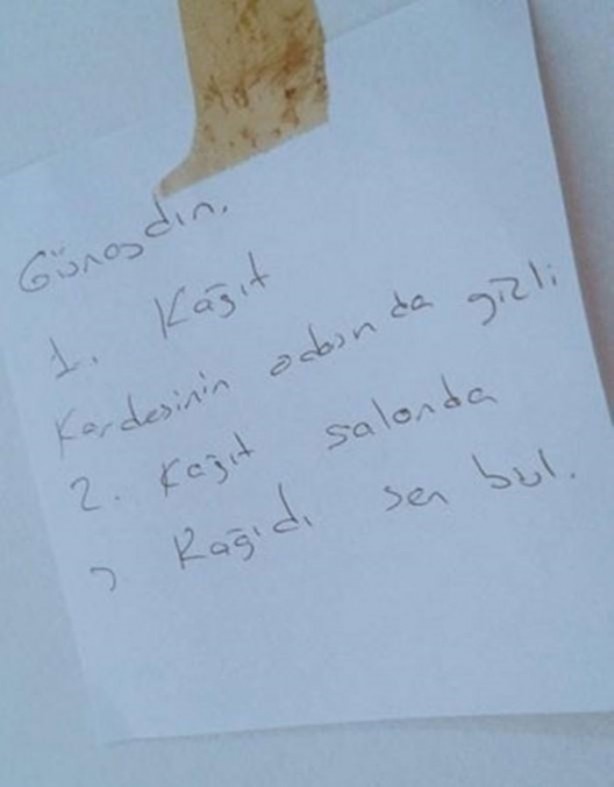 Günaydın.
1. Kağıt
Kardeşinin odasında gizli
2. Kağıt salonda
3 Kağıdı sen bul.